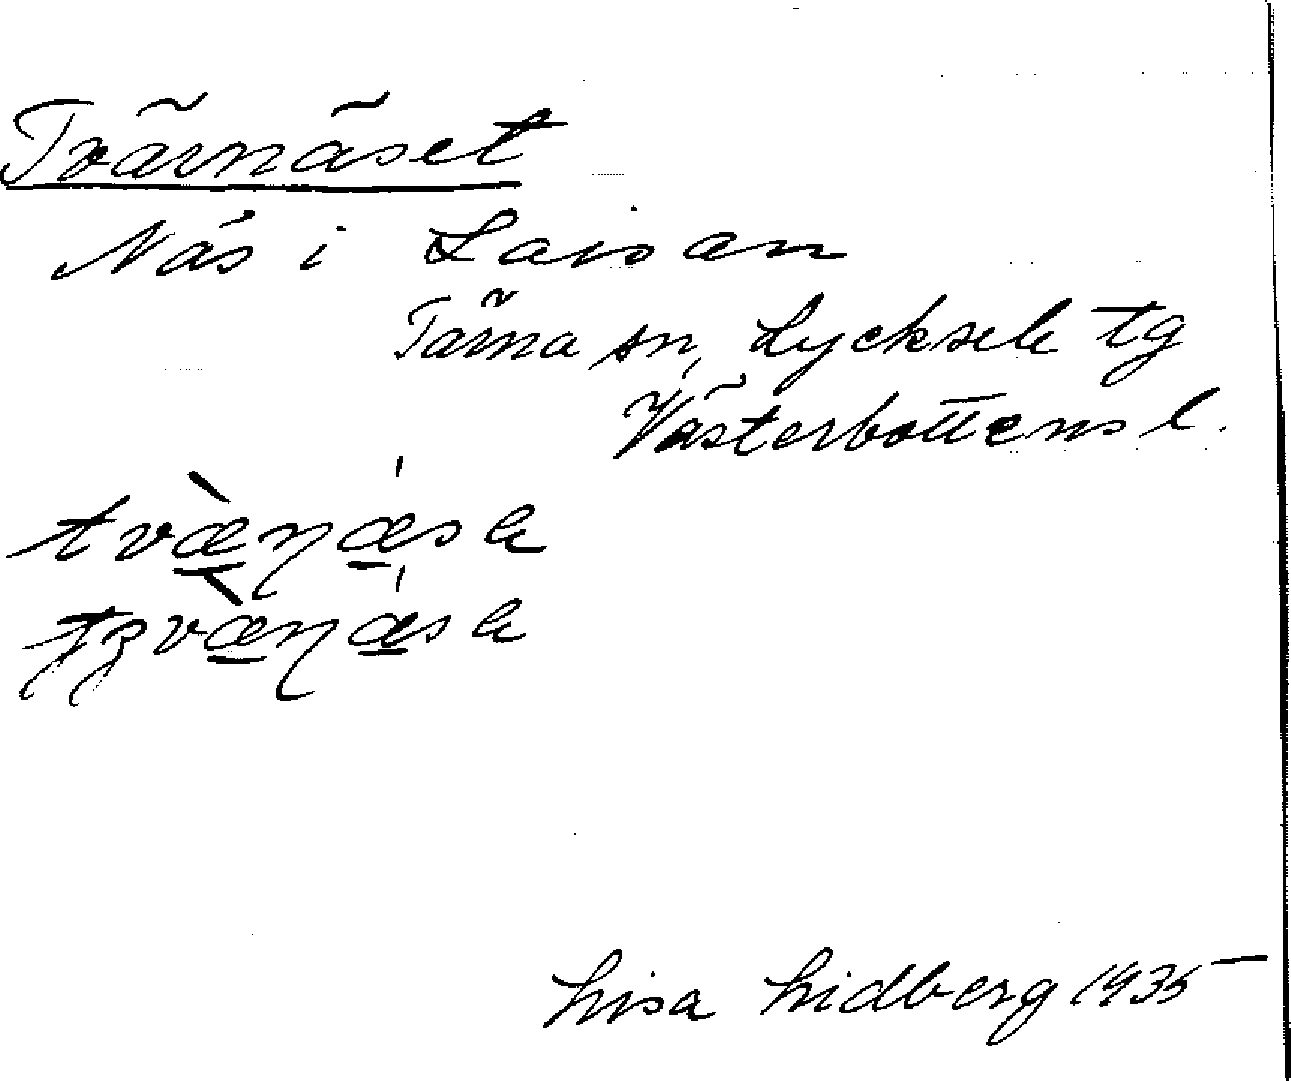 Tvärnäset
Näs i Laisan
Tärna sn, Lycksele tg
Västerbottens l.
Lisa Lidberg 1935